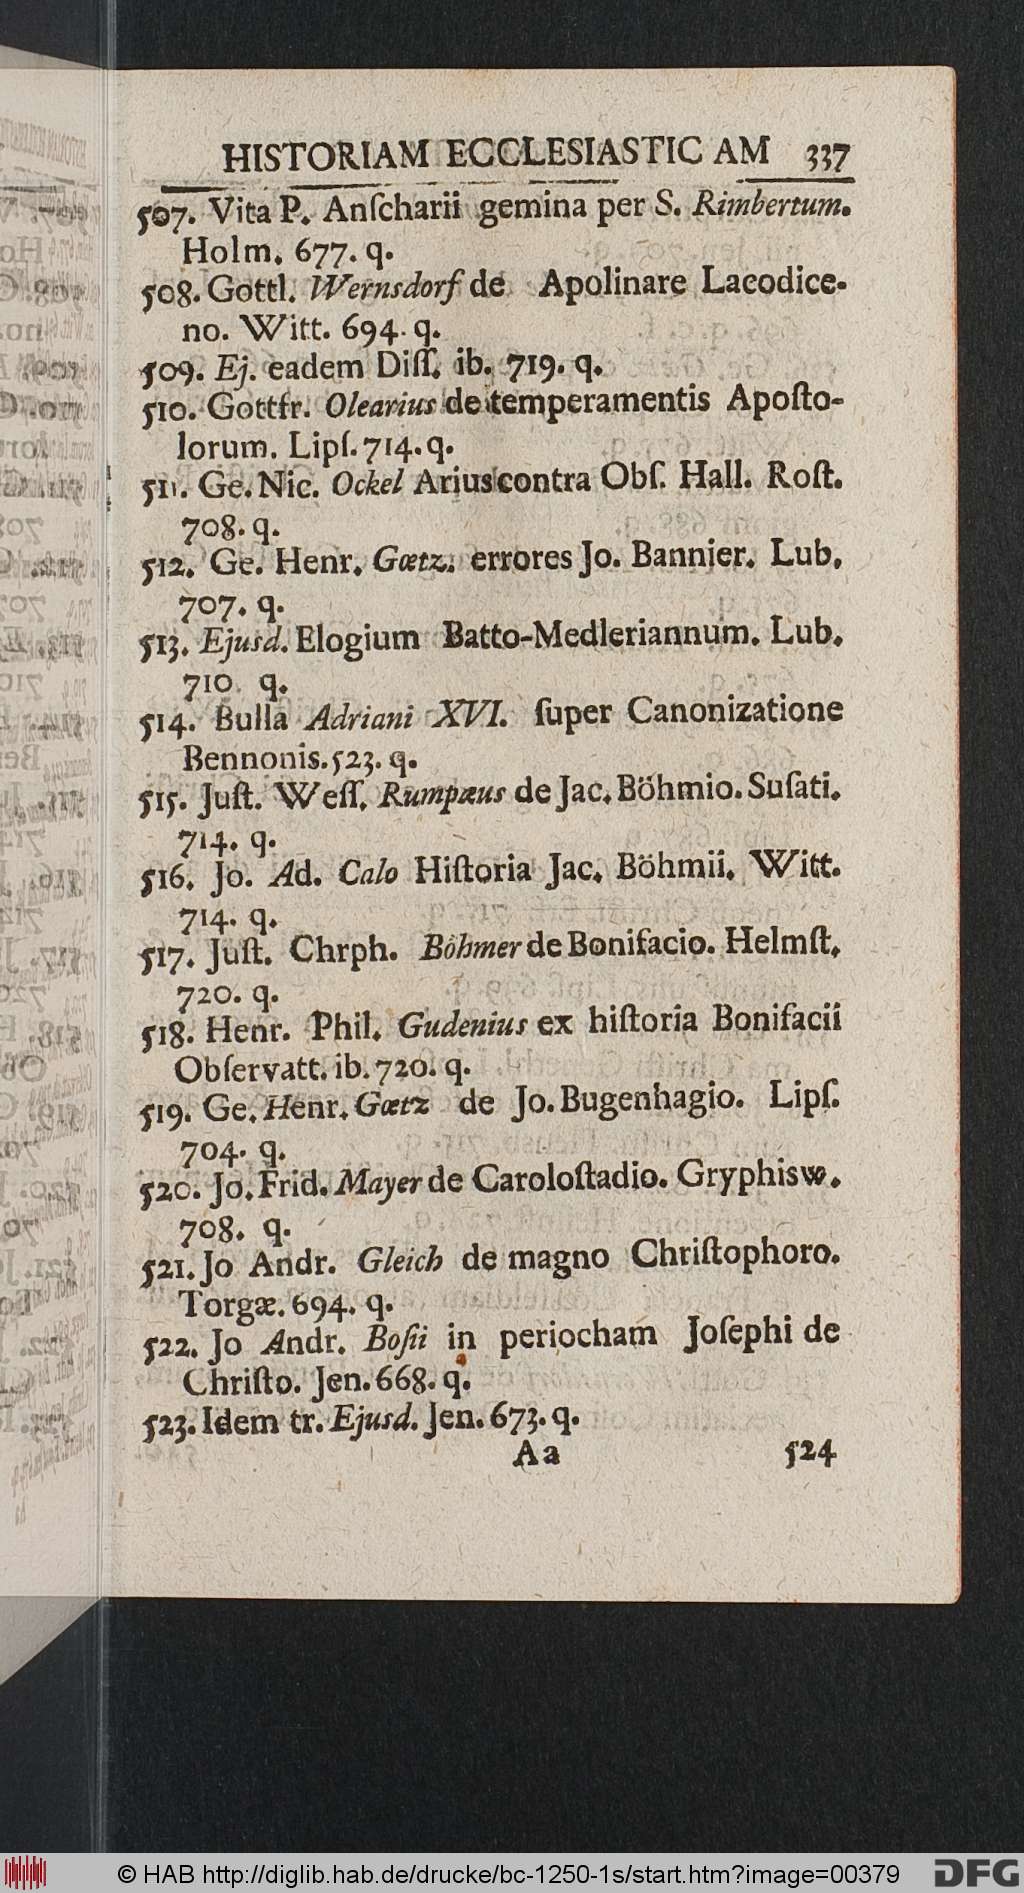 HISTORIAM ECCLESIASTIC AM 337
507. Vita P. Anſcharii gemina per S. Rimbertum.
Holm. 677. q.
508. Gottl. Wernsdorf de Apolinare Laeodice-
no. Witt. 694. q.
509. Ej. eadem Diſſ. ib. 719. q.
510. Gottfr. Olearius de temperamentis Apoſto-
lorum. Lipſ. 714. q.
511. Ge. Nic. Ockel Arius contra Obſ. Hall. Roſt.
708. q.
512. Ge. Henr. Gœtz. errores Jo. Bannier. Lub.
707. q.
513. Ejusd. Elogium Batto-Medleriannum. Lub.
710. q.
514. Bulla Adriani XVI. ſuper Canonizatione
Bennonis. 523. q.
515. Juſt. Weſſ. Rumpæus de Jac. Böhmio. Suſati.
714. q.
516. Jo. Ad. Calo Hiſtoria Jac. Böhmii. Witt.
714. q.
517. Juſt. Chrph. Böhmer de Bonifacio. Helmſt.
720. q.
518. Henr. Phil. Gudenius ex hiſtoria Bonifacii
Obſervatt. ib. 720. q.
519. Ge. Henr. Gœtz de Jo. Bugenhagio. Lipſ.
704. q.
520. Jo. Frid. Mayer de Caroloſtadio. Gryphisw.
708. q.
521. Jo Andr. Gleich de magno Chriſtophoro.
Torgæ. 694. q.
522. Jo Andr. Boſii in periocham Joſephi de
Chriſto. Jen. 668. q.
523. Idem tr. Ejusd. Jen. 673. q.
Aa 524
© HAB http://diglib.hab.de/drucke/bc-1250-1s/start.htm?image=00379
DFG